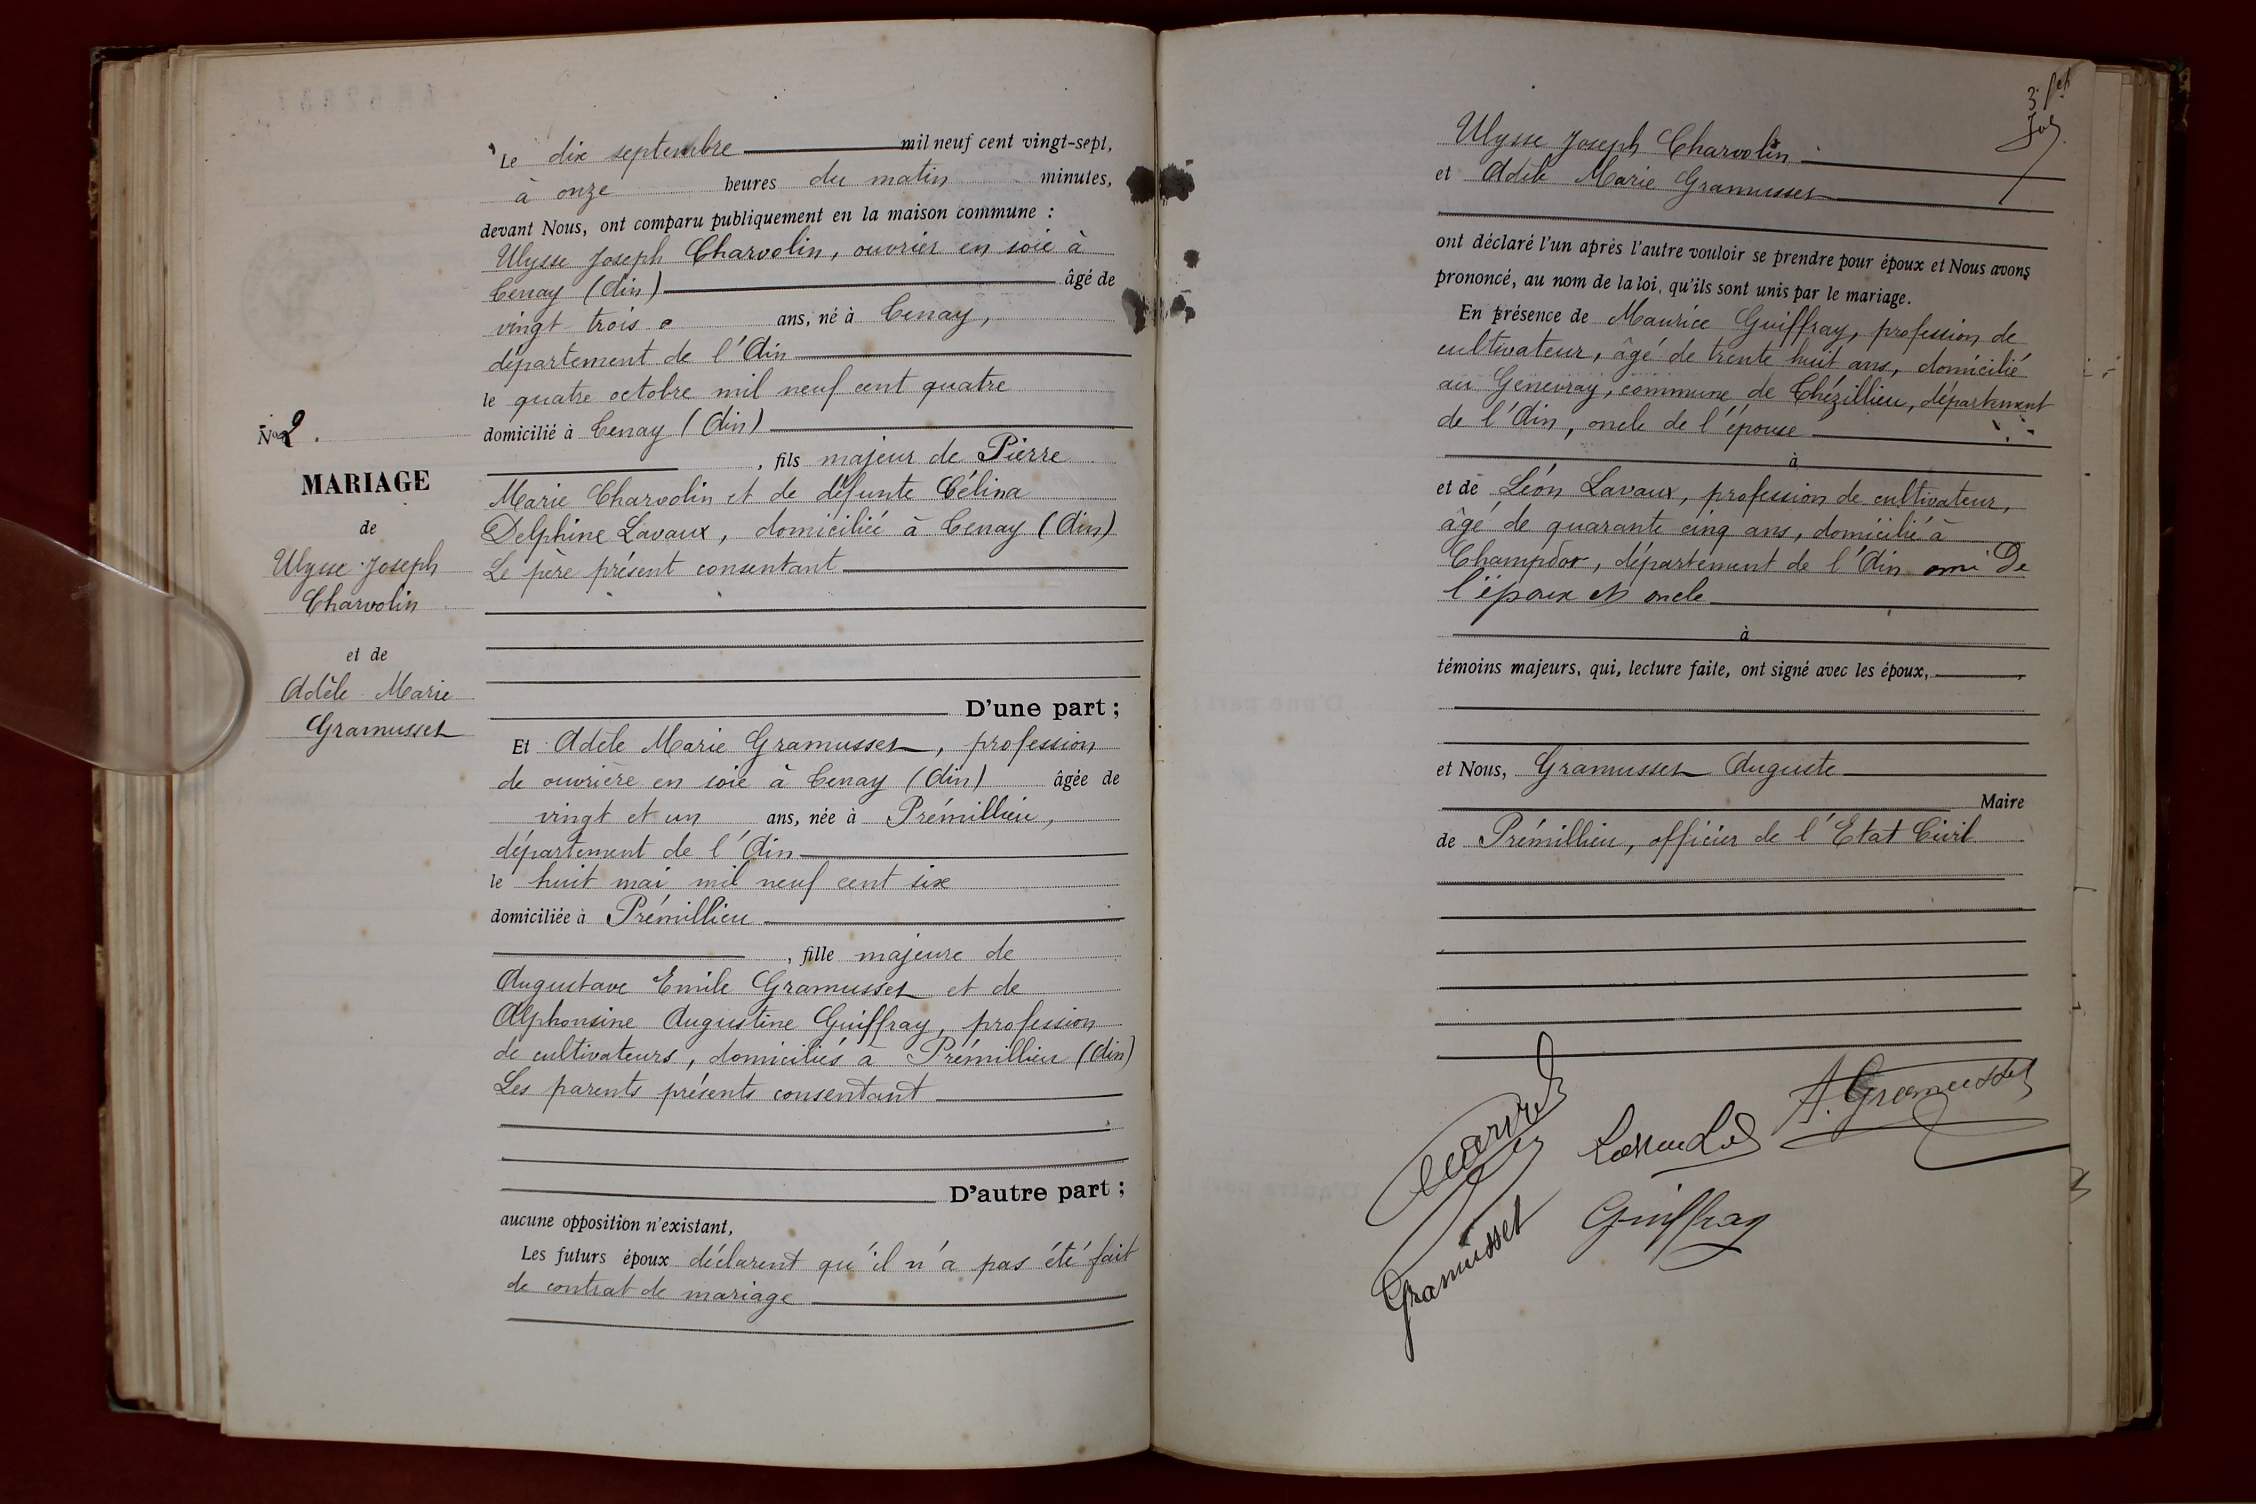 Le dix septembre mil neuf cent vingt-sept,
à onze heures du matin minutes,
devant Nous, ont comparu publiquement en la maison commune :
Ulysse Joseph Charvolin, ouvrier en soie à
Tenay (Ain) âgé de
vingt trois ans, né à Tenay,
département de l'Ain
le quatre octobre mil neuf cent quatre
domicilié à Tenay (Ain)
, fils majeur de Pierre
Marie Charvolin et de défunte Célina
Delphine Lavaux, domiciliée à Tenay (Ain)
Le père présent consentant
D'une part ;
Et Adèle Marie Gramusset, profession
de ouvrière en soie à Tenay (Ain) âgée de
vingt et un ans, née à Prémillieu,
département de l'Ain
le huit mai mil neuf cent six
domiciliée à Prémillieu
, fille majeure de
Augustave Emile Gramusset et de
Alphonsine Augustine Guiffray, profession
de cultivateurs, domiciliés à Prémillieu (Ain)
Les parents présents consentant
D'autre part ;
aucune opposition n'existant,
Les futurs époux déclarent qu'il n'a pas été fait
de contrat de mariage
No 2.
MARIAGE
de
Ulysse Joseph
Charvolin
et de
Adèle Marie
Gramusset
3.
Ulysse Joseph Charvolin
et Adèle Marie Gramusset
ont déclaré l'un après l'autre vouloir se prendre pour époux et Nous avons
prononcé, au nom de la loi, qu'ils sont unis par le mariage.
En présence de Maurice Guiffray, profession de
cultivateur, âgé de trente huit ans, domicilié
au Genevray, commune de Thézillieu, département
de l'Ain, oncle de l'épouse
à
et de Léon Lavaux, profession de cultivateur,
âgé de quarante cinq ans, domicilié à
Champdor, département de l'Ain ami De
l'époux et oncle
à
témoins majeurs, qui, lecture faite, ont signé avec les époux,
et Nous, Gramusset Auguste
Maire
de Prémillieu, officier de l'Etat Civil
A. Gramusset
Guiffray
Gramusset